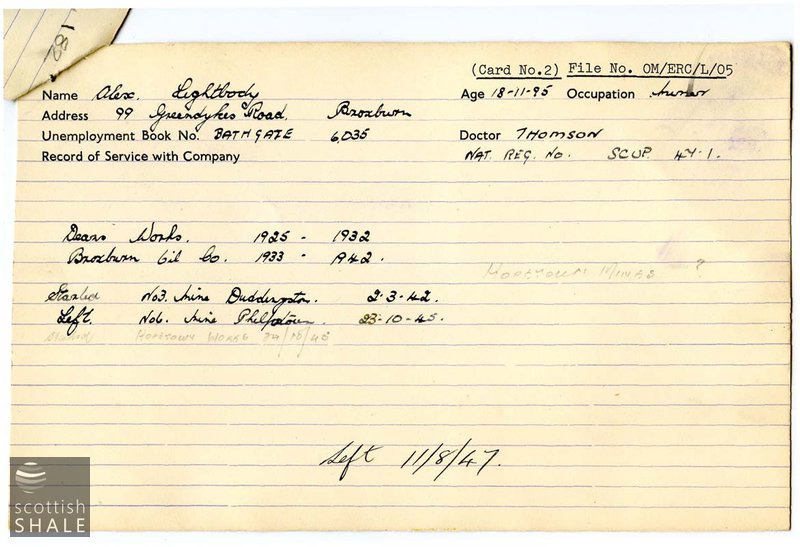 (Card No.2) File No. OM/ERC/L/05
Name Alex. Lightbody Age 18-11-95 Occupation Miner
Address 99 Greendykes Road. Broxburn
Unemployment Book No. BATHGATE 6,035 Doctor THOMSON
Record of Service with Company NAT. REG. No. SCUP. 47-1.
Deans Works. 1925 - 1932
Broxburn Oil Co. 1933 - 1942.
?
Started No3. Mine Duddingston. 2-3-42.
Left. No6. Mine Philpstoun. 23-10-45.
Started HOPETOWN WORKS 24/10/45
Left 11/8/47.
scottish
SHALE